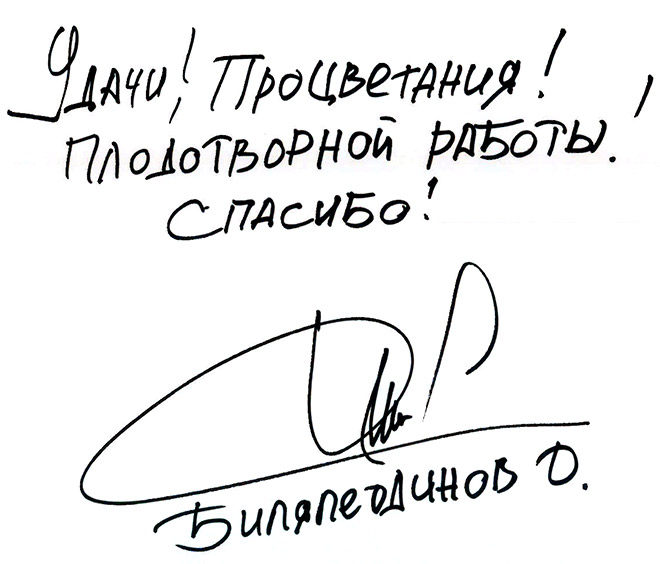 Удачи! Процветания!
Плодотворной работы!
Спасибо!
Билялетдинов Д.